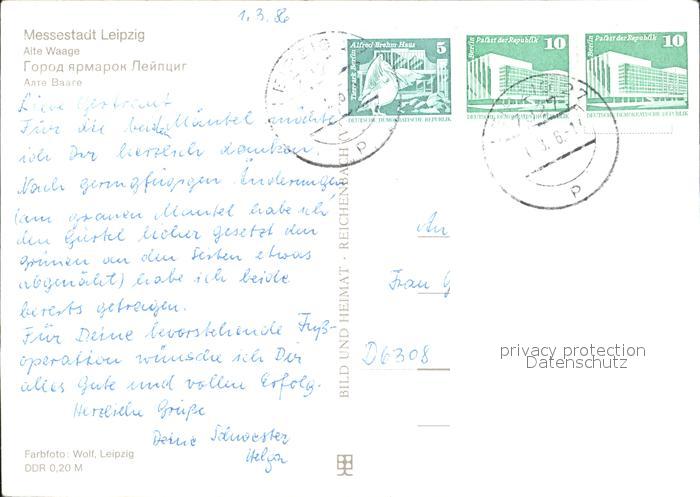 1.3.86
Messestadt Leipzig
Alte Waage
Город ярмарок Лейпциг
Алте Вааге
Liebe Gertraut
Für die beiden Mäntel möchte
ich Dir herzlich danken.
Nach geringfügigen Änderungen
(am grauen Mantel habe ich
den Gürtel höher gesetzt den
grünen an den Seiten etwas
abgenäht) habe ich beide
bereits getragen.
Für Deine bevorstehende Fuß-
operation wünsche ich Dir
alles Gute und vollen Erfolg.
Herzliche Grüße
Deine Schwester
Helga
Farbfoto: Wolf, Leipzig
DDR 0,20 M
BILD UND HEIMAT · REICHENBACH
Alfred Brehm Haus
5
Tierpark Berlin
DEUTSCHE DEMOKRATISCHE REPUBLIK
Palast der Republik
10
Berlin
DEUTSCHE DEMOKRATISCHE REPUBLIK
Palast der Republik
10
Berlin
DEUTSCHE DEMOKRATISCHE REPUBLIK
An
Frau G
D6308
privacy protection
Datenschutz